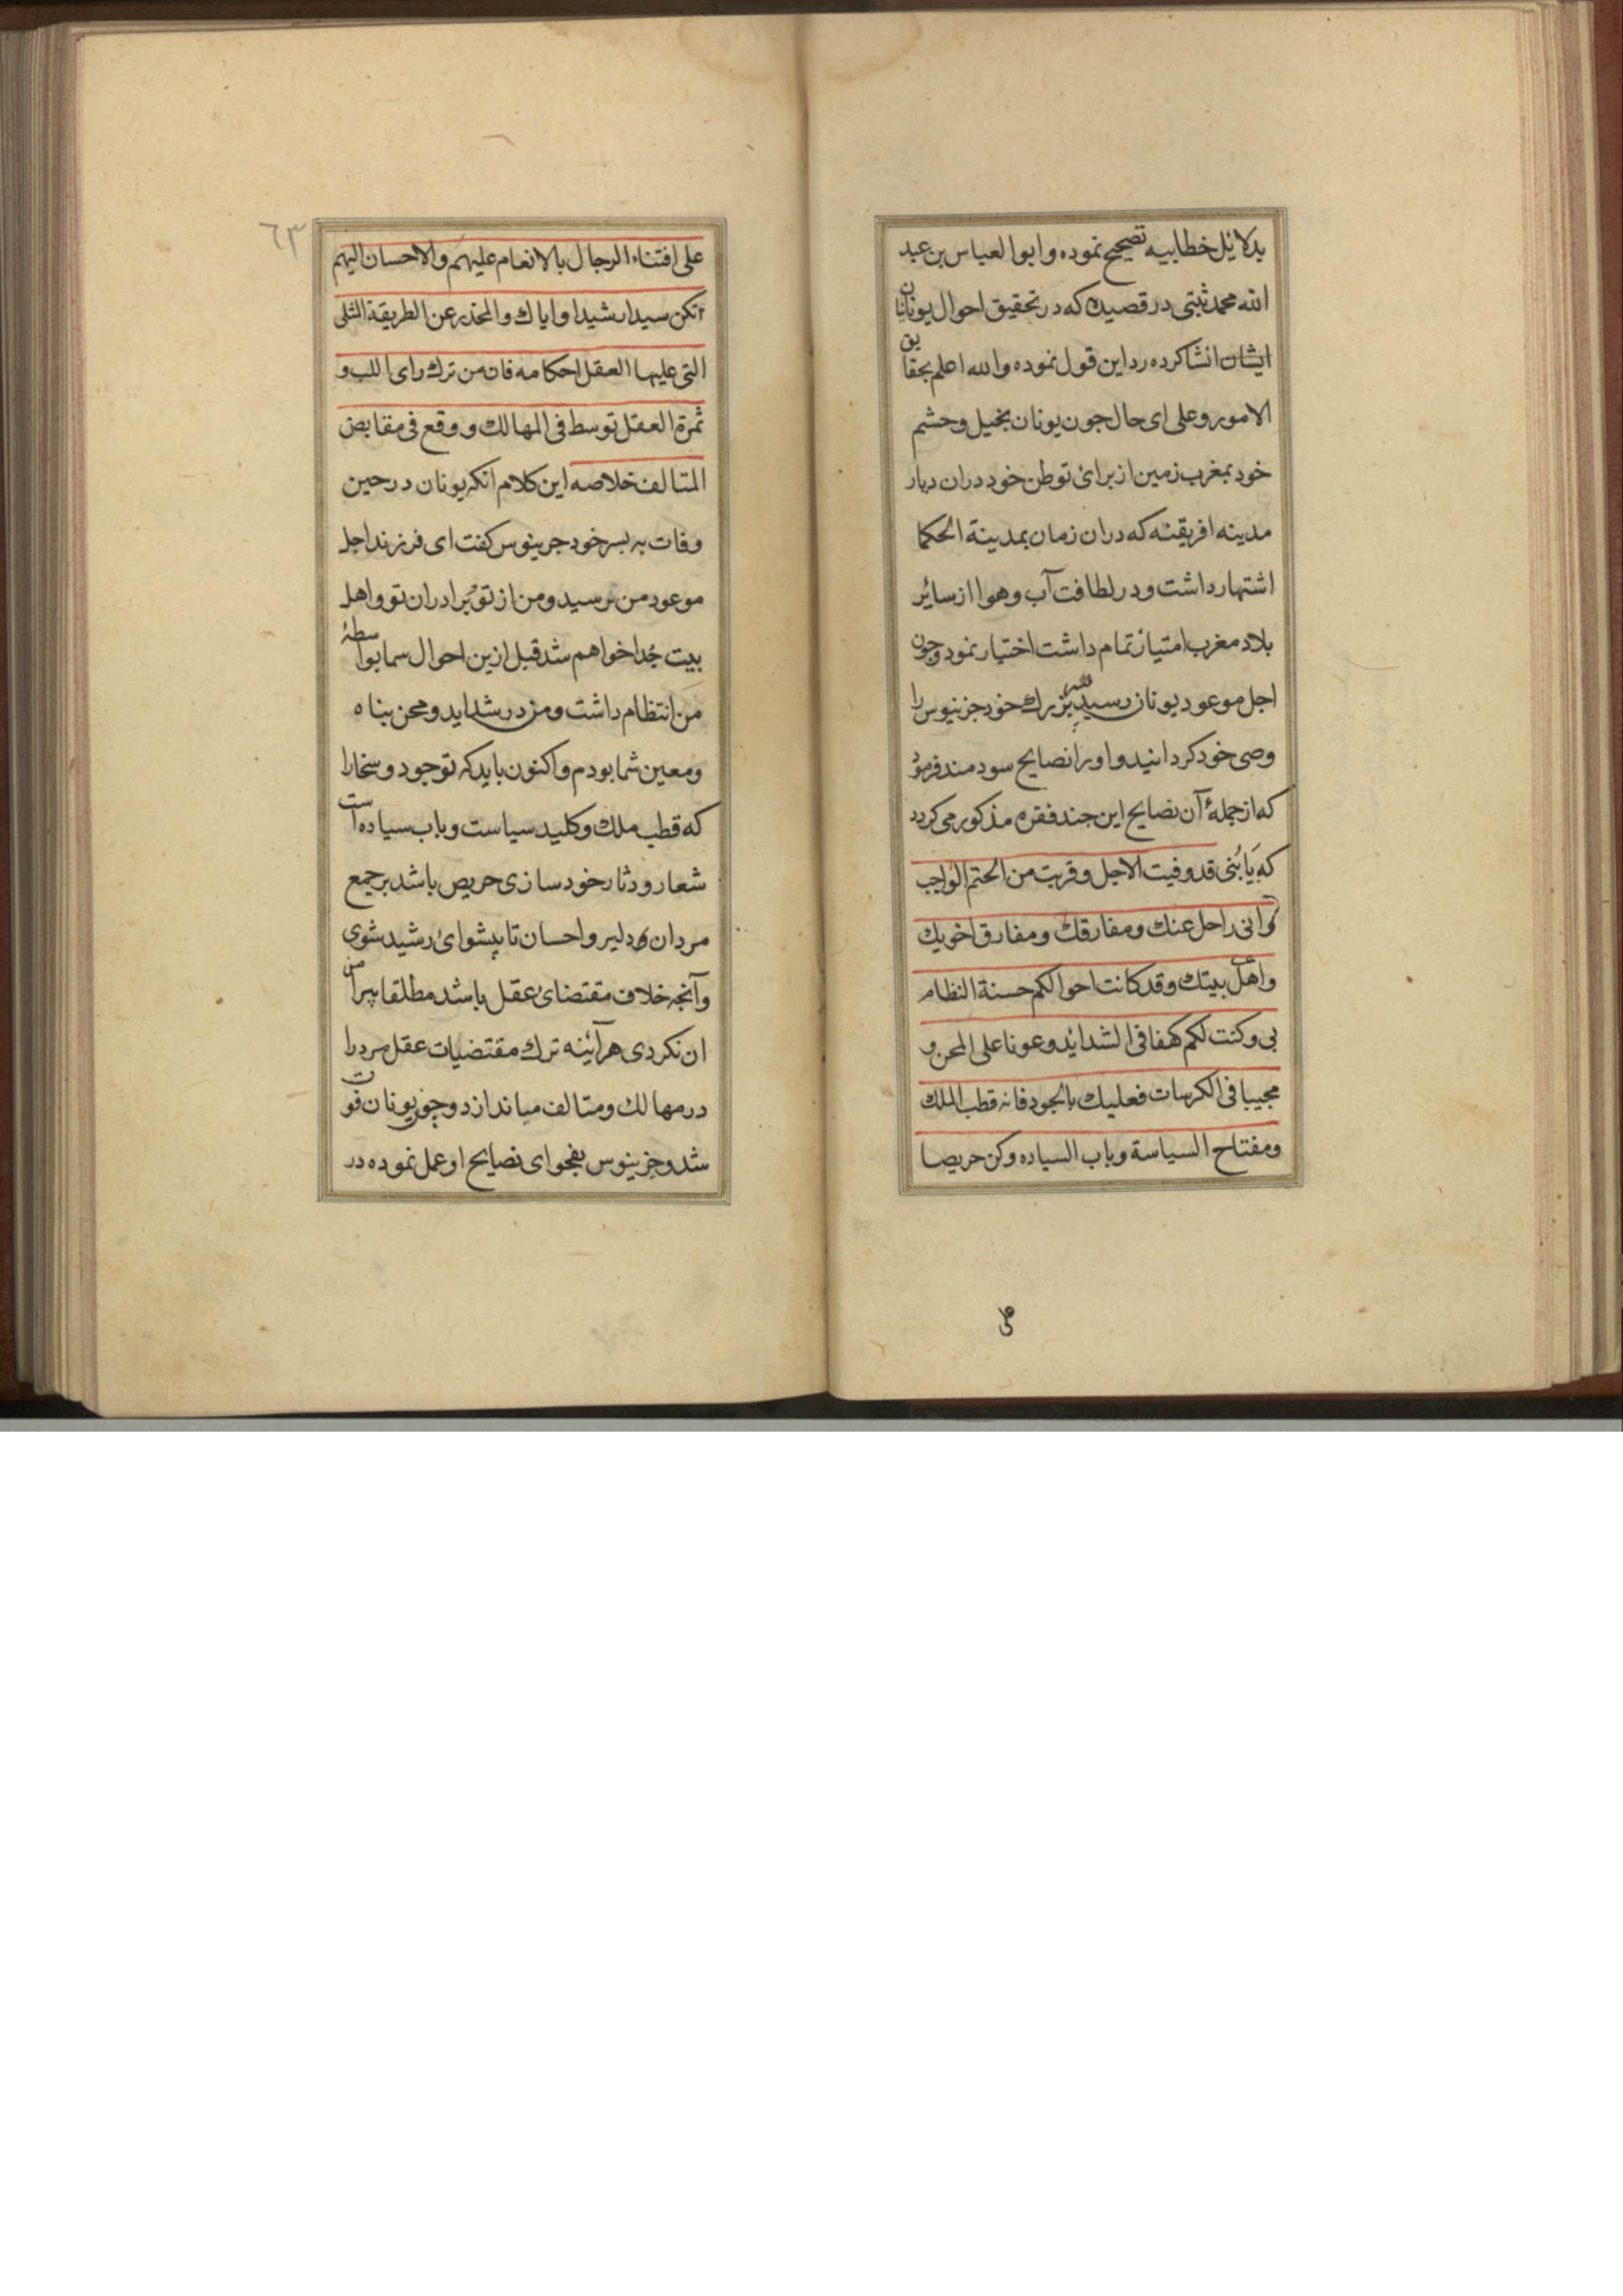 بدلائل خطابیه تصحیح نموده و ابوالعباس بن عبد
الله محمد ثبتی در قصیده که در تحقیق احوال یونان
ایشان انشا کرده رد این قول نموده والله اعلم بحقایق
الامور وعلی ای حال جون یونان بخیل و حشم
خود بمغرب زمین از برای توطن خود دران دیار
مدینه افریقنه که دران زمان بمدینة الحکما
اشتهار داشت و در لطافت آب و هوا از سائر
بلاد مغرب امتیاز تمام داشت اختیار نمود وجون
اجل موعود یونان رسید بزرك خود جزنیوس را
وصی خود کردانید و او را نصایح سودمند فرمود
که از جملۀ آن نصایح این جند فقره مذکور می کردد
که یا بُنی قد وفیت الاجل و قربت من الحتم الواجب
وانی راحل عنك ومفارقك ومفارق اخویك
واهل بیتك وقد کانت احوالکم حسنة النظام
بی وکنت لکم کهفا فی الشداید وعونا علی المحن و
مجیبا فی الکربات فعلیك بالجود فانه قطب الملك
ومفتاح السیاسة وباب السیاده وکن حریصا
٦٣
علی افتناء الرجال بالانعام علیهم والاحسان الیهم
تکن سیدا رشیدا وایاك والمحذر عن الطریقة المثلی
التی علیها العقل احکامه فان من ترك رای اللب و
ثمرة العقل توسط فی المهالك و وقع فی مقابض
المتالف خلاصه این کلام انکه یونان در حین
وفات به بسر خود جرینوس کفت ای فرزند اجل
موعود من برسید ومن از تو و برادران تو و اهل
بیت جُدا خواهم شد قبل ازین احوال سما بواسطۀ
من انتظام داشت و من در شداید و محن بناه
ومعین شما بودم و اکنون باید که تو جود و سخا را
که قطب ملك و کلید سیاست و باب سیاده است
شعار و دثار خود سازی حریص باشد بر جمع
مردان دلیر و احسان تا پیشوای رشید شوی
وآنجه خلاف مقتضای عقل باشد مطلقا پیرامن
ان نکردی هرآئینه ترك مقتضیات عقل مرد را
در مهالك و متالف میاندازد و جون یونان فوت
شد وجزینوس بفحوای نصایح او عمل نموده در